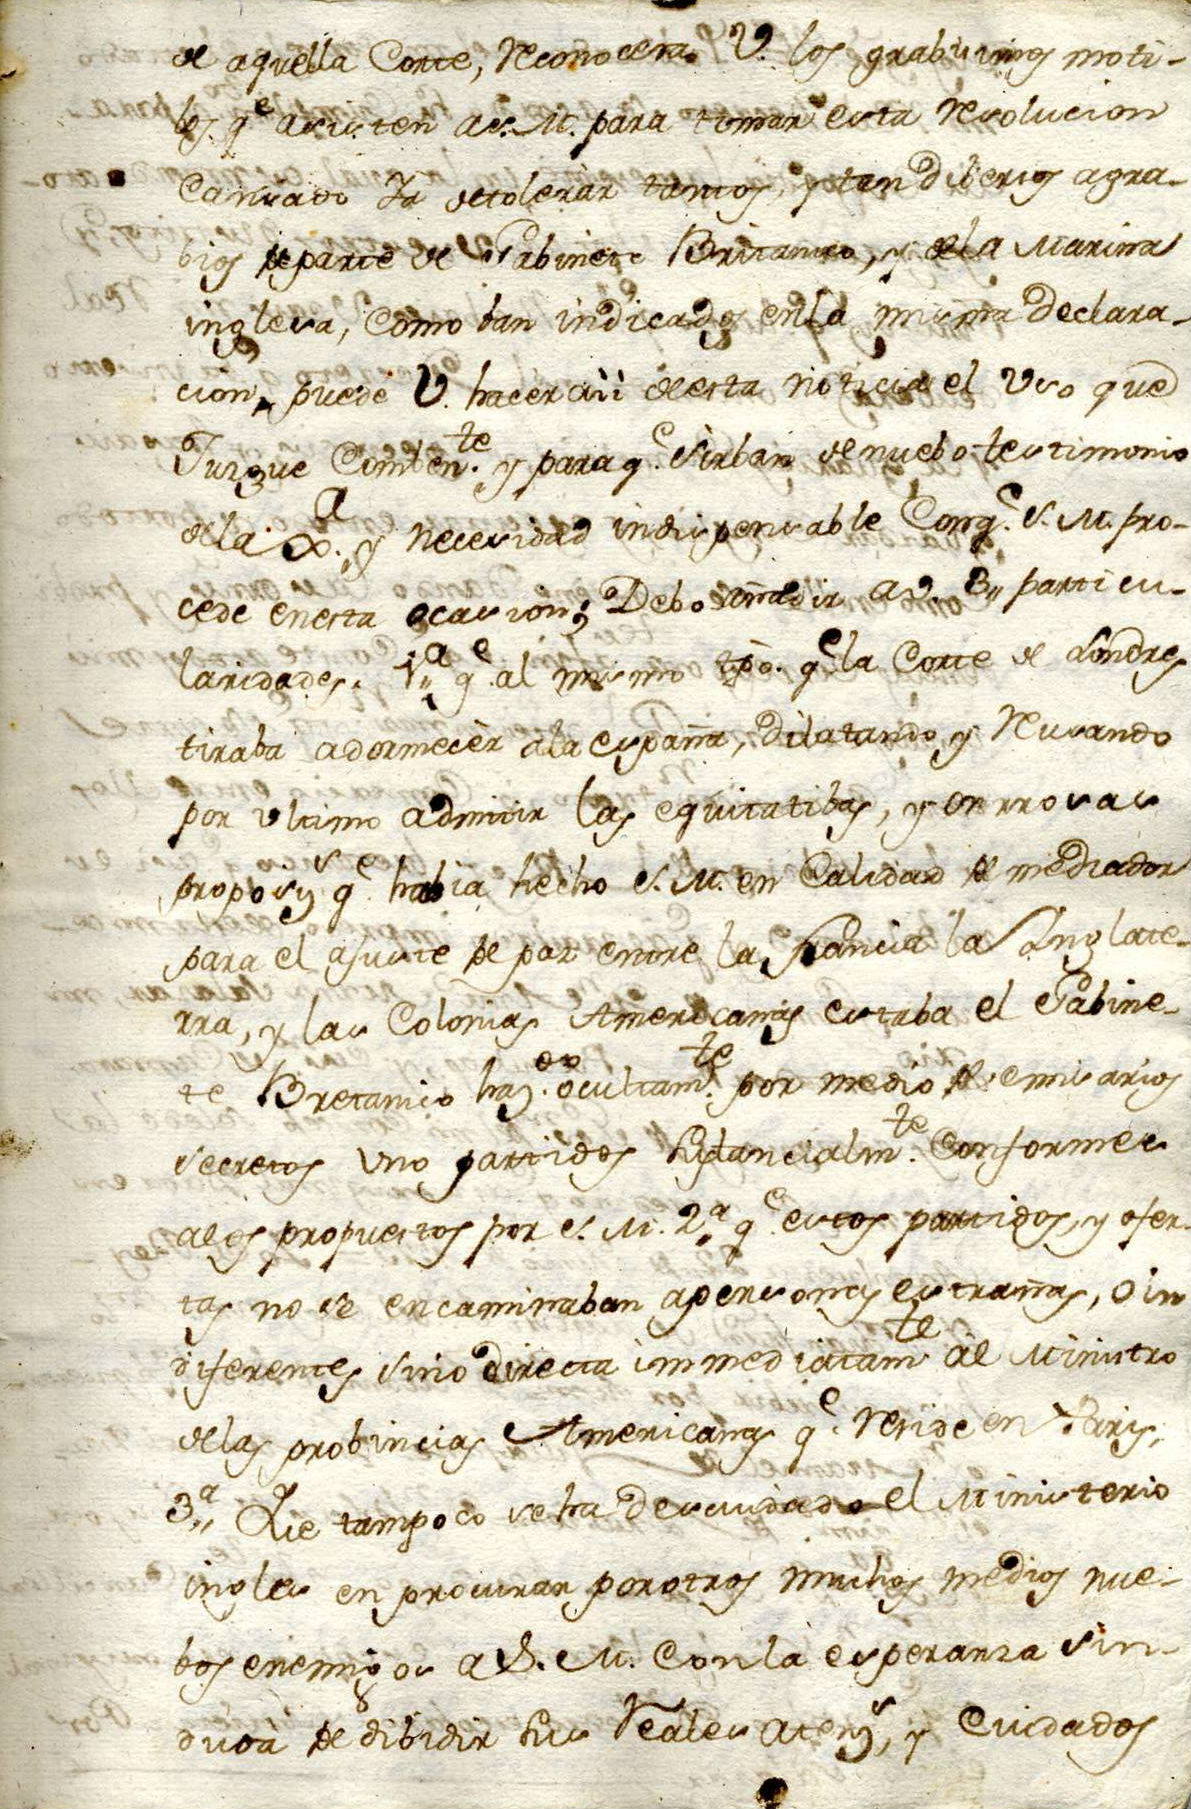 de aquella Corte, Reconocera V. los grabisimos moti-
bos qe asisten a s. M. para tomar esta Resolucion
Cansado Ya de toleràr tantos, y tan diberios agra-
bios de parte del Gabinete Britanico, y dela Marina
inglesa, Como ban indicados en la misma declara-
cion, puede V. hacer aìì de esta noticia el Uso que
Juzgue Comben.te y para q.e sirban de nuebo testimonio
dela y necesidad indispensable Conq.e S. M. pro-
cede en esta ocasion; Debo añadir a V. 3,, particu-
laridades. 1,,a q.e al mismo tpô. qe la Corte de Londres
tiraba adormecèr ala españa, dilatando, y Reusando
por ultimo admitir las equitatibas, y onrrosas
proposi.s q.e habia hecho S. M. en Calidad de mediador
para el ajuste de paz entre la francia la Inglate-
rra, y las Colonias Americanas estaba el Gabine-
te Bretanico haz.do ocultam.te por medio de emisarios
secretos uno partidos sustancialm.te Conformes
alos propuestos por S. M. 2.a q.e estos partidos, y ofer-
tas no se encaminaban apersonas estrañas, ó in
diferentes sino directa immediatamte al Ministro
delas probincias Americanas q.e Reside en Paris,
3,,a Que tampoco se ha descuidado el Ministerio
ingles en procurar por otros muchos medios nue-
bos enemigos a S. M. Con la esperanza sin-
duda de dibidir sus Reales aten.s, y Cuidados